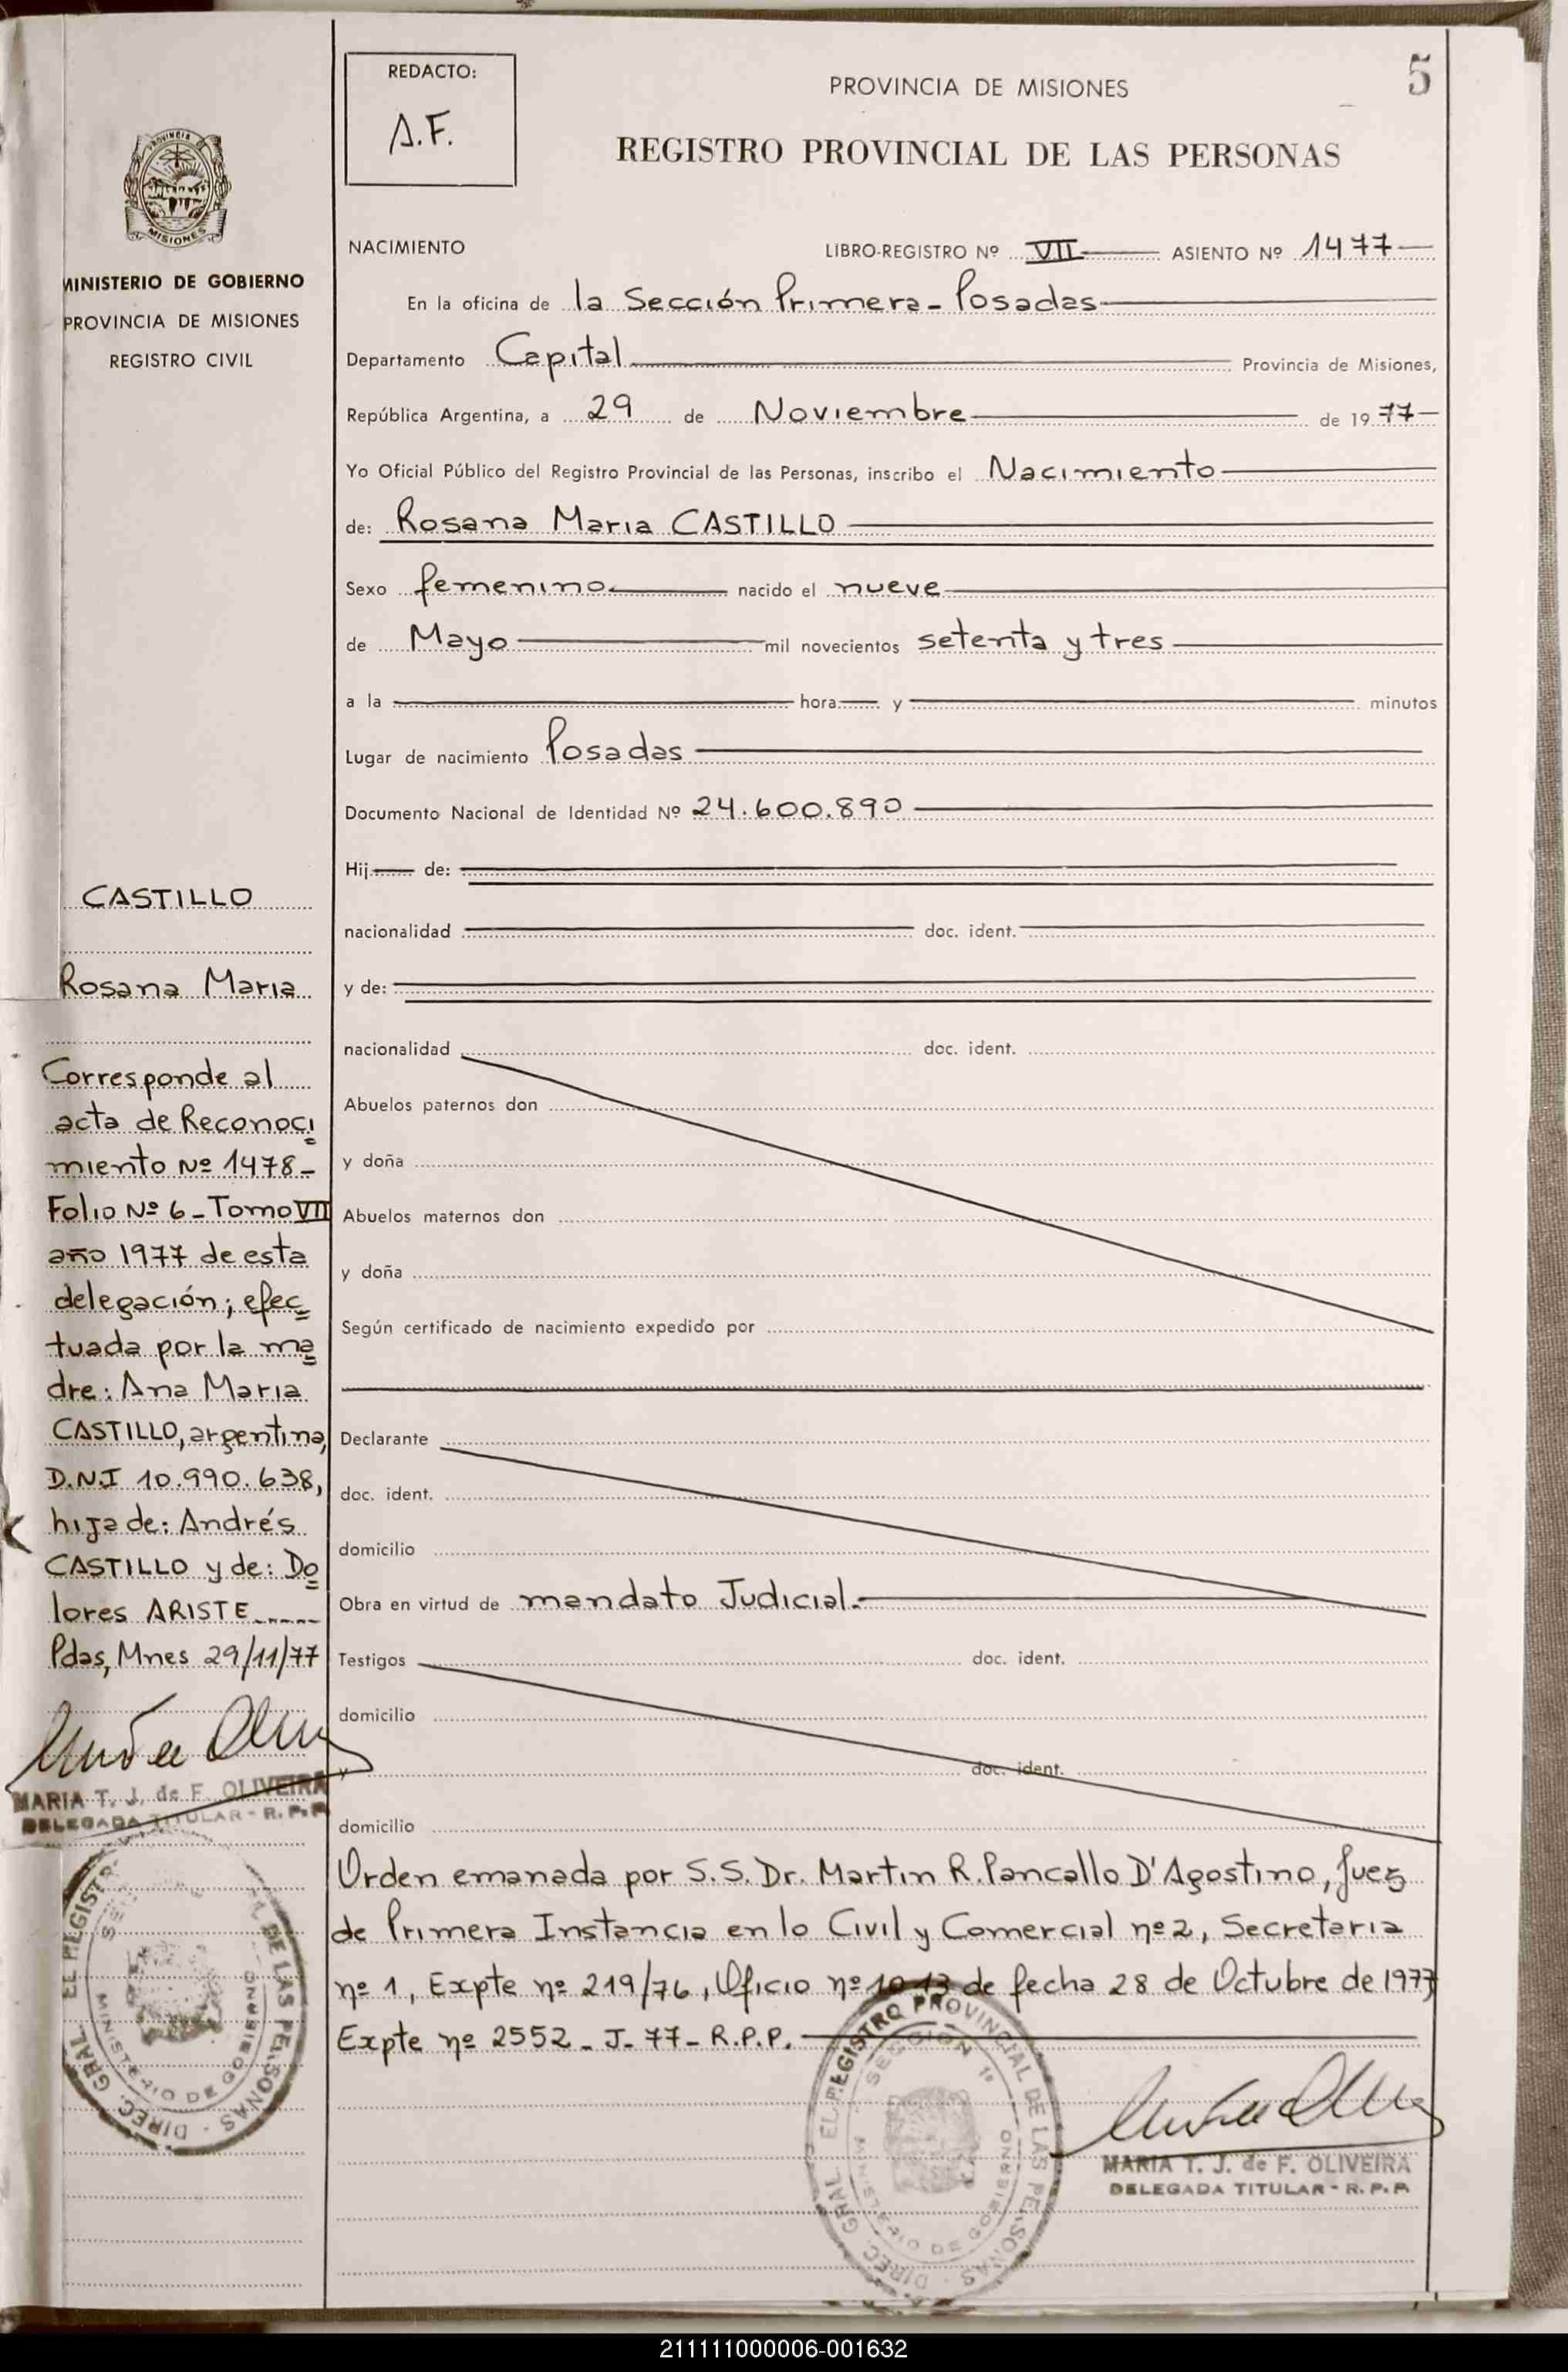 5
REDACTO:
A.F.
PROVINCIA DE MISIONES
REGISTRO PROVINCIAL DE LAS PERSONAS
PROVINCIA DE
MISIONES
MINISTERIO DE GOBIERNO
PROVINCIA DE MISIONES
REGISTRO CIVIL
NACIMIENTO LIBRO-REGISTRO Nº VII ASIENTO Nº 1477
En la oficina de la Sección Primera - Posadas
Departamento Capital Provincia de Misiones,
República Argentina, a 29 de Noviembre de 1977
Yo Oficial Público del Registro Provincial de las Personas, inscribo el Nacimiento
de: Rosana Maria CASTILLO
Sexo femenino nacido el nueve
de Mayo mil novecientos setenta y tres
a la hora y minutos
Lugar de nacimiento Posadas
Documento Nacional de Identidad Nº 24.600.890
Hij de:
nacionalidad doc. ident.
y de:
nacionalidad doc. ident.
Abuelos paternos don
y doña
Abuelos maternos don
y doña
Según certificado de nacimiento expedido por
Declarante
doc. ident.
domicilio
Obra en virtud de mandato Judicial.
Testigos doc. ident.
domicilio
y doc. ident.
domicilio
Orden emanada por S.S. Dr. Martin R. Pancallo D'Agostino, Juez
de Primera Instancia en lo Civil y Comercial nº 2, Secretaria
nº 1, Expte nº 219/76, Oficio nº 1013 de fecha 28 de Octubre de 1977
Expte nº 2552 - J - 77 - R.P.P.
DIREC. GRAL. EL REGISTRO PROVINCIAL DE LAS PERSONAS
SECCION 1ª
MINISTERIO DE GOBIERNO
MARIA T. J. de F. OLIVEIRA
DELEGADA TITULAR - R. P. P.
CASTILLO
Rosana Maria
Corresponde al
acta de Reconoci
miento Nº 1478-
Folio Nº 6 - Tomo VII
año 1977 de esta
delegación; efec
tuada por la ma
dre: Ana Maria
CASTILLO, argentina,
D.N.I 10.990.638,
hija de: Andrés
CASTILLO y de: Do
lores ARISTE
Pdas, Mnes 29/11/77
MARIA T. J. de F. OLIVEIRA
DELEGADA TITULAR - R. P. P.
DIREC. GRAL. EL REGISTR DE LAS PERSONAS
MINISTERIO DE GOBIERNO
211111000006-001632